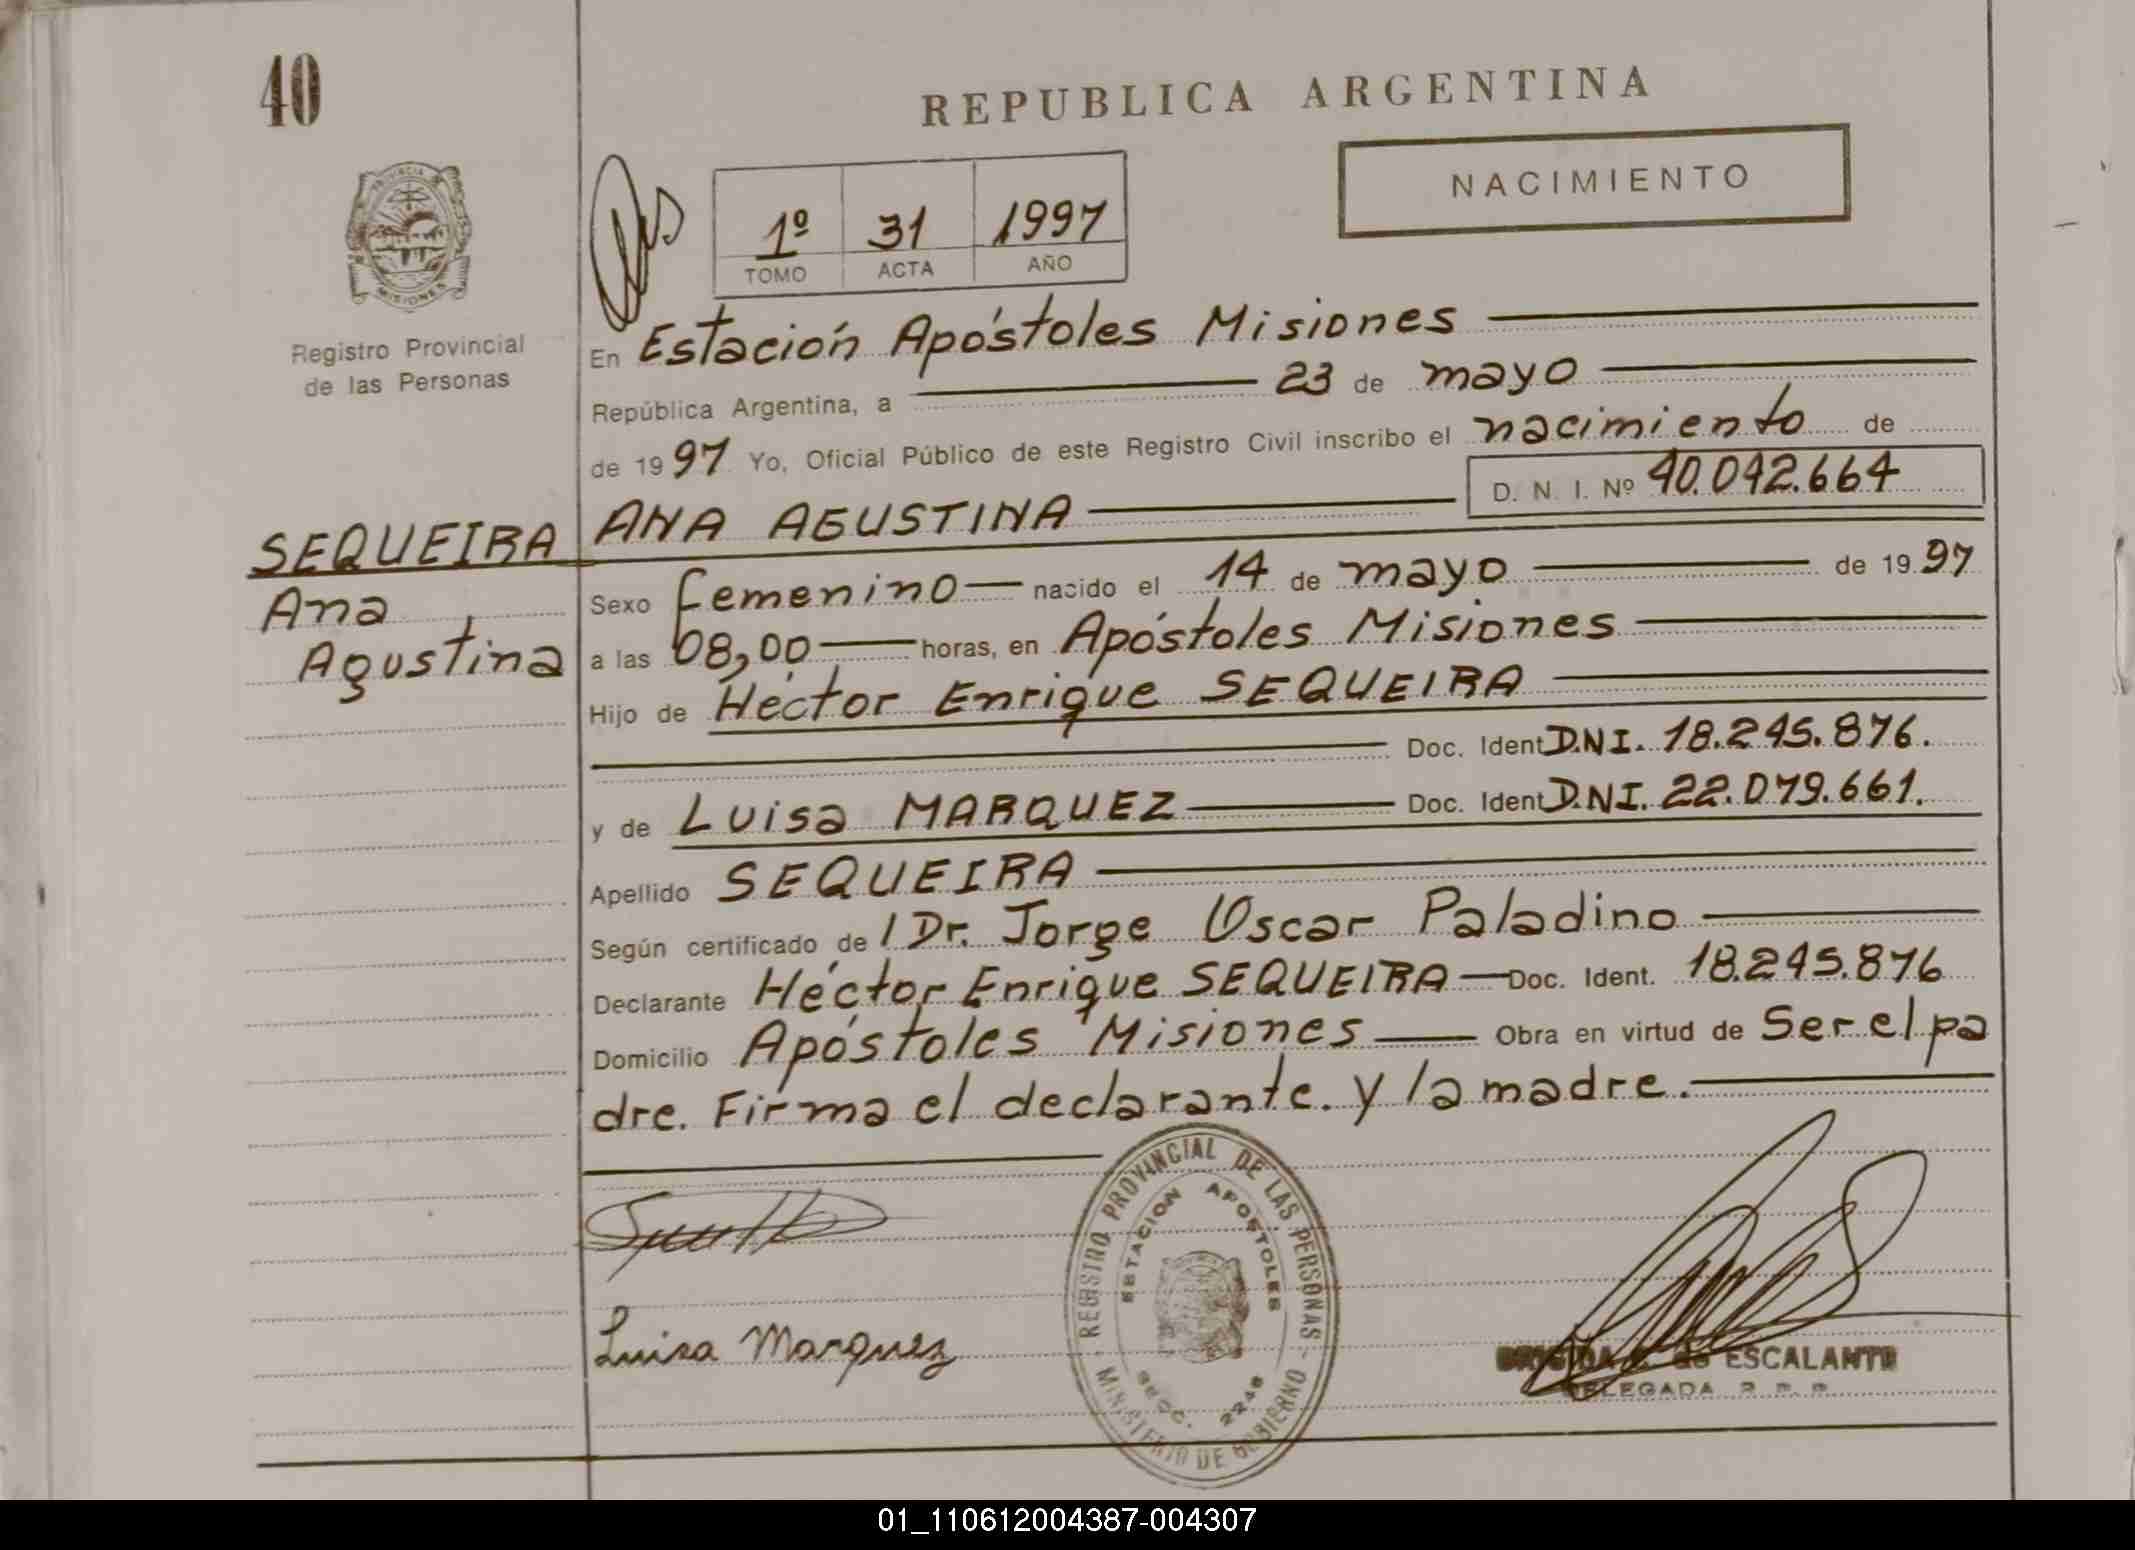 40
REPUBLICA ARGENTINA
NACIMIENTO
PROVINCIA DE
MISIONES
Registro Provincial
de las Personas
1º 31 1997
TOMO ACTA AÑO
En Estación Apóstoles Misiones
República Argentina, a 23 de mayo
de 1997 Yo, Oficial Público de este Registro Civil inscribo el nacimiento de
D. N. I. Nº 40.042.664
SEQUEIRA ANA AGUSTINA
Ana
Agustina
Sexo femenino nacido el 14 de mayo de 1997
a las 08,00 horas, en Apóstoles Misiones
Hijo de Héctor Enrique SEQUEIRA
Doc. Ident D.N.I. 18.245.876.
y de Luisa MARQUEZ Doc. Ident D.N.I. 22.079.661.
Apellido SEQUEIRA
Según certificado de l Dr. Jorge Oscar Paladino
Declarante Héctor Enrique SEQUEIRA Doc. Ident. 18.245.876
Domicilio Apóstoles Misiones Obra en virtud de Ser el pa
dre. Firma el declarante. y la madre.
REGISTRO PROVINCIAL DE LAS PERSONAS
ESTACION APOSTOLES
SECC. 2248
MINISTERIO DE GOBIERNO
Luisa Marquez
de ESCALANTE
DELEGADA R. P. P.
01_110612004387-004307